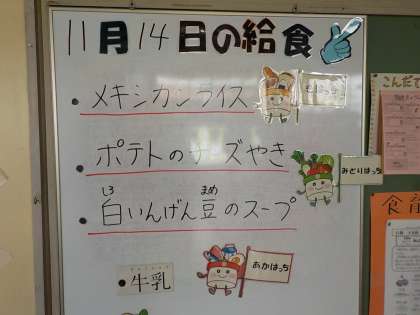 11月14日の給食
メキシカンライス
ポテトのチーズやき
みどりはっち
白いんげん豆のスープ
しろ
まめ
あかはっち
牛乳
こんだて
食育